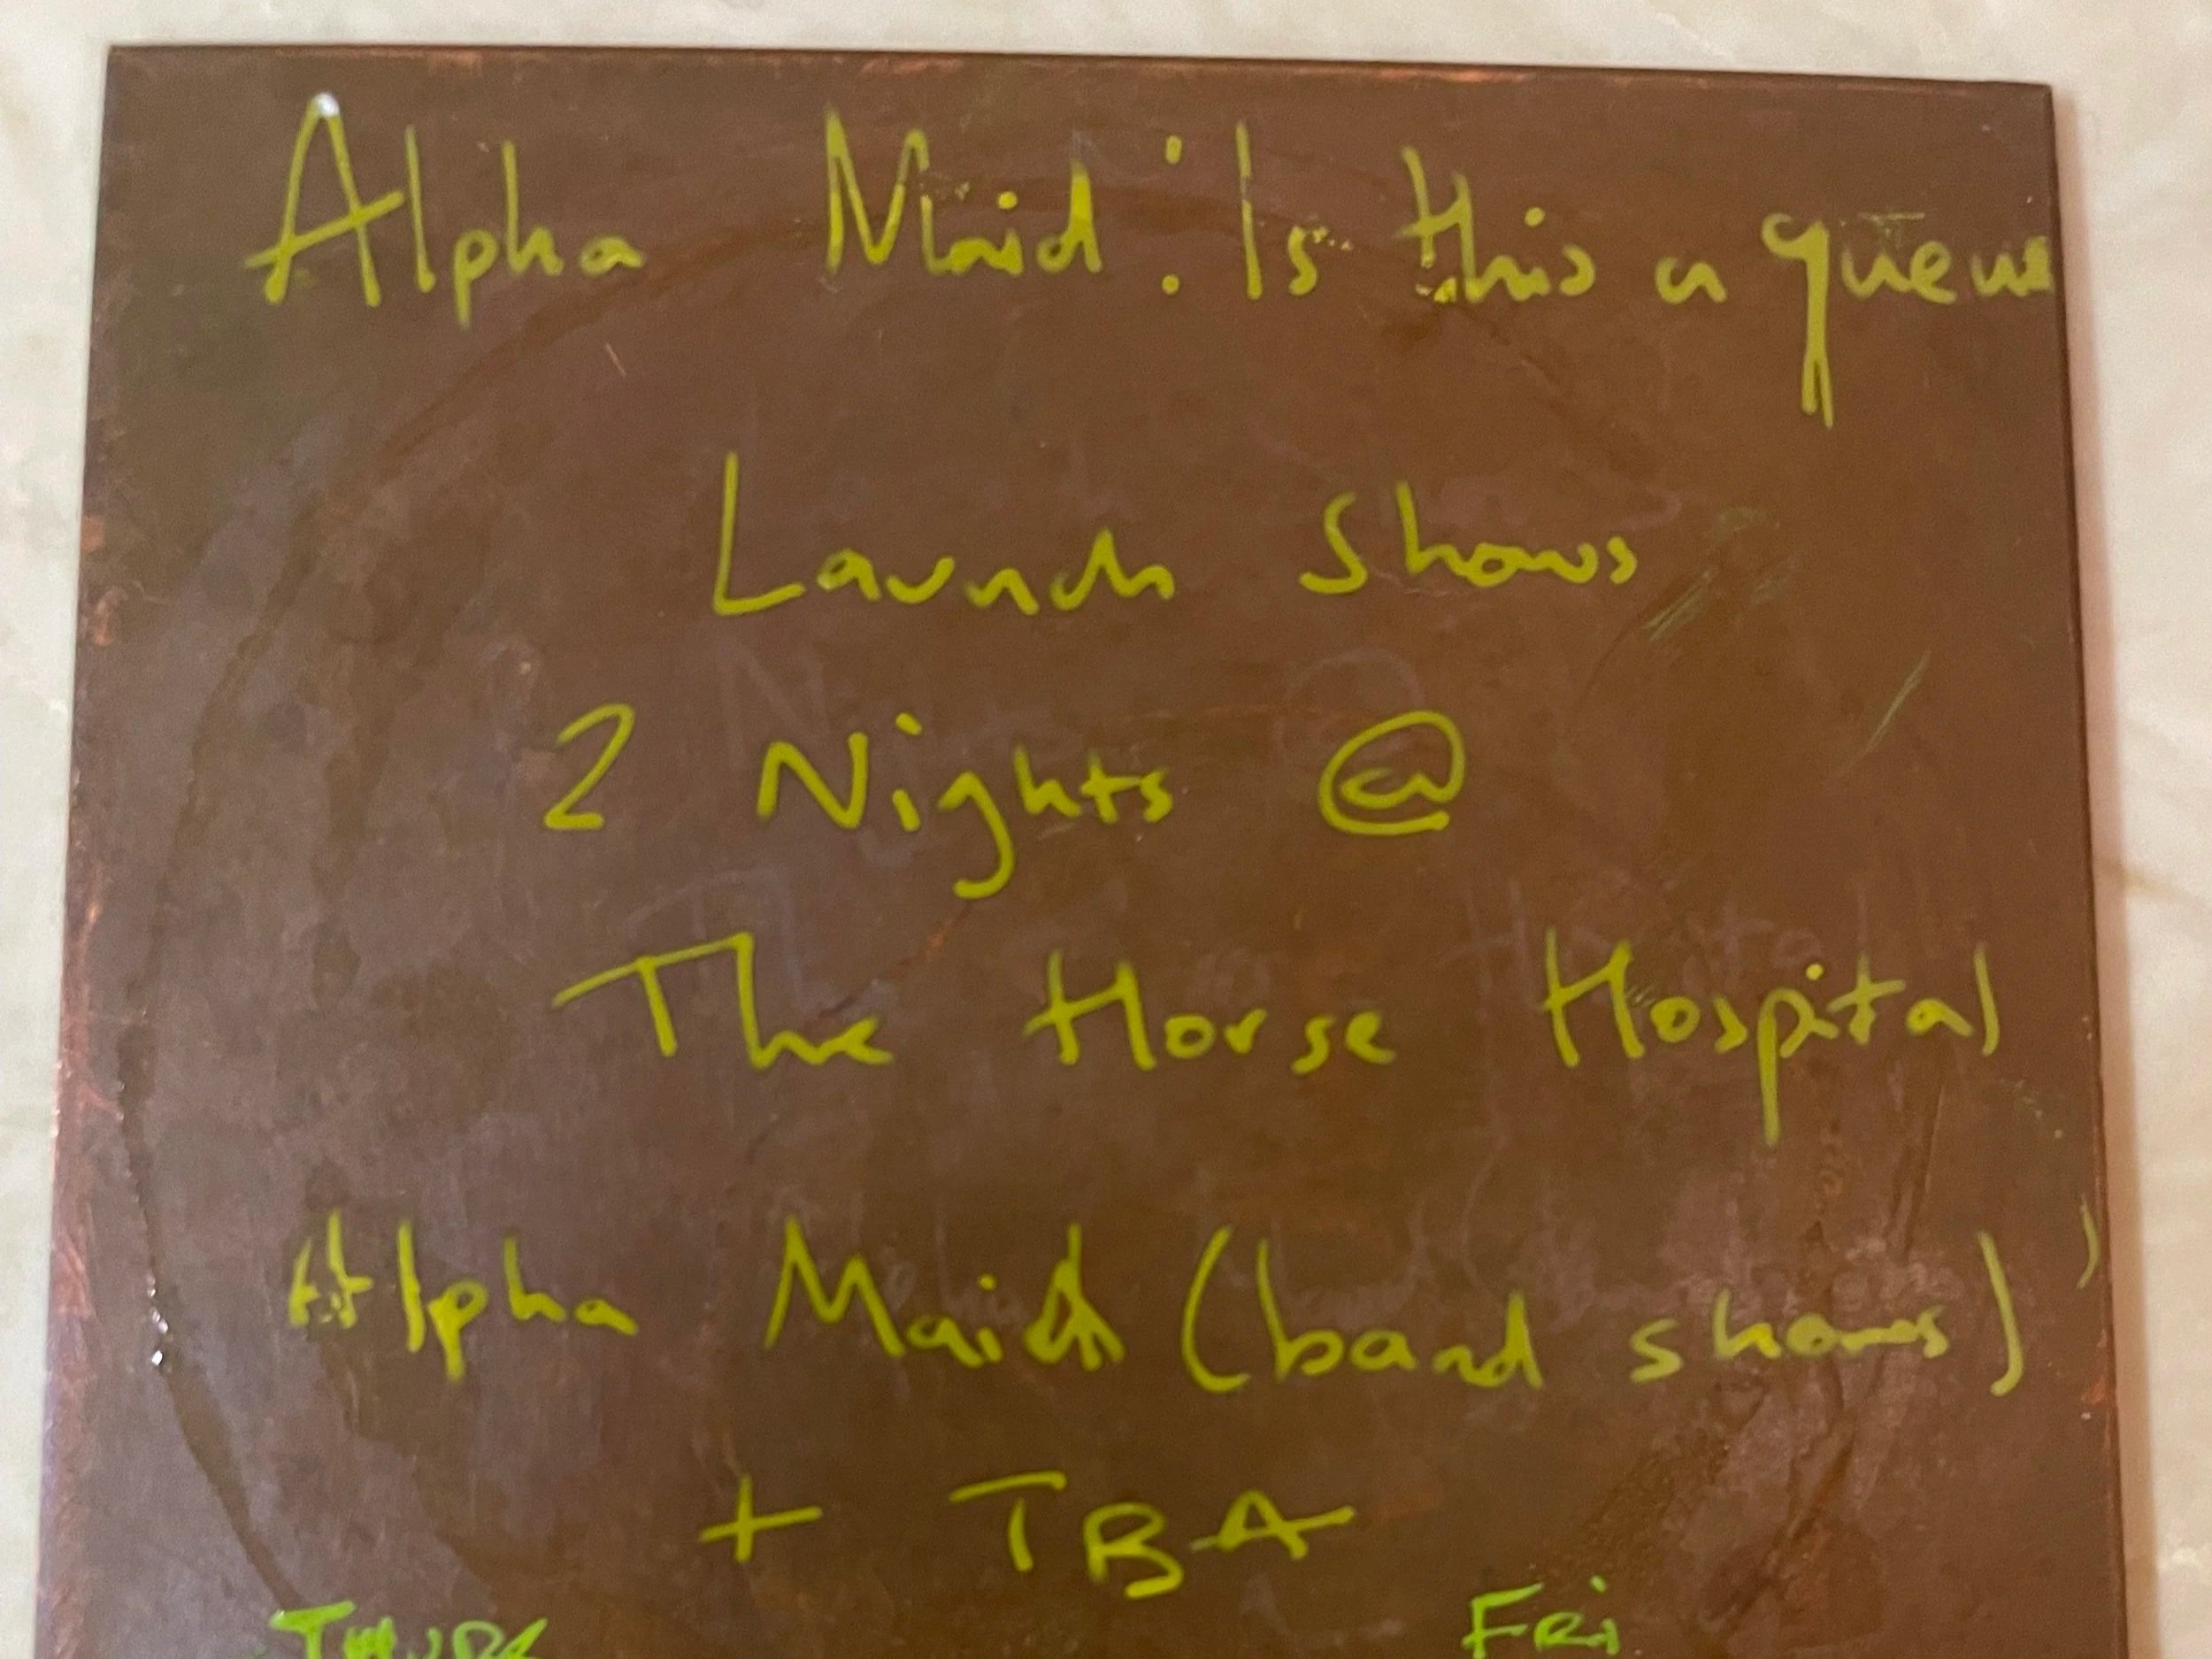 Alpha Maid : Is this a queue
Launch Shows
2 Nights @
The Horse Hospital
Alpha Maid (band shows)
+ TBA
THURS FRI